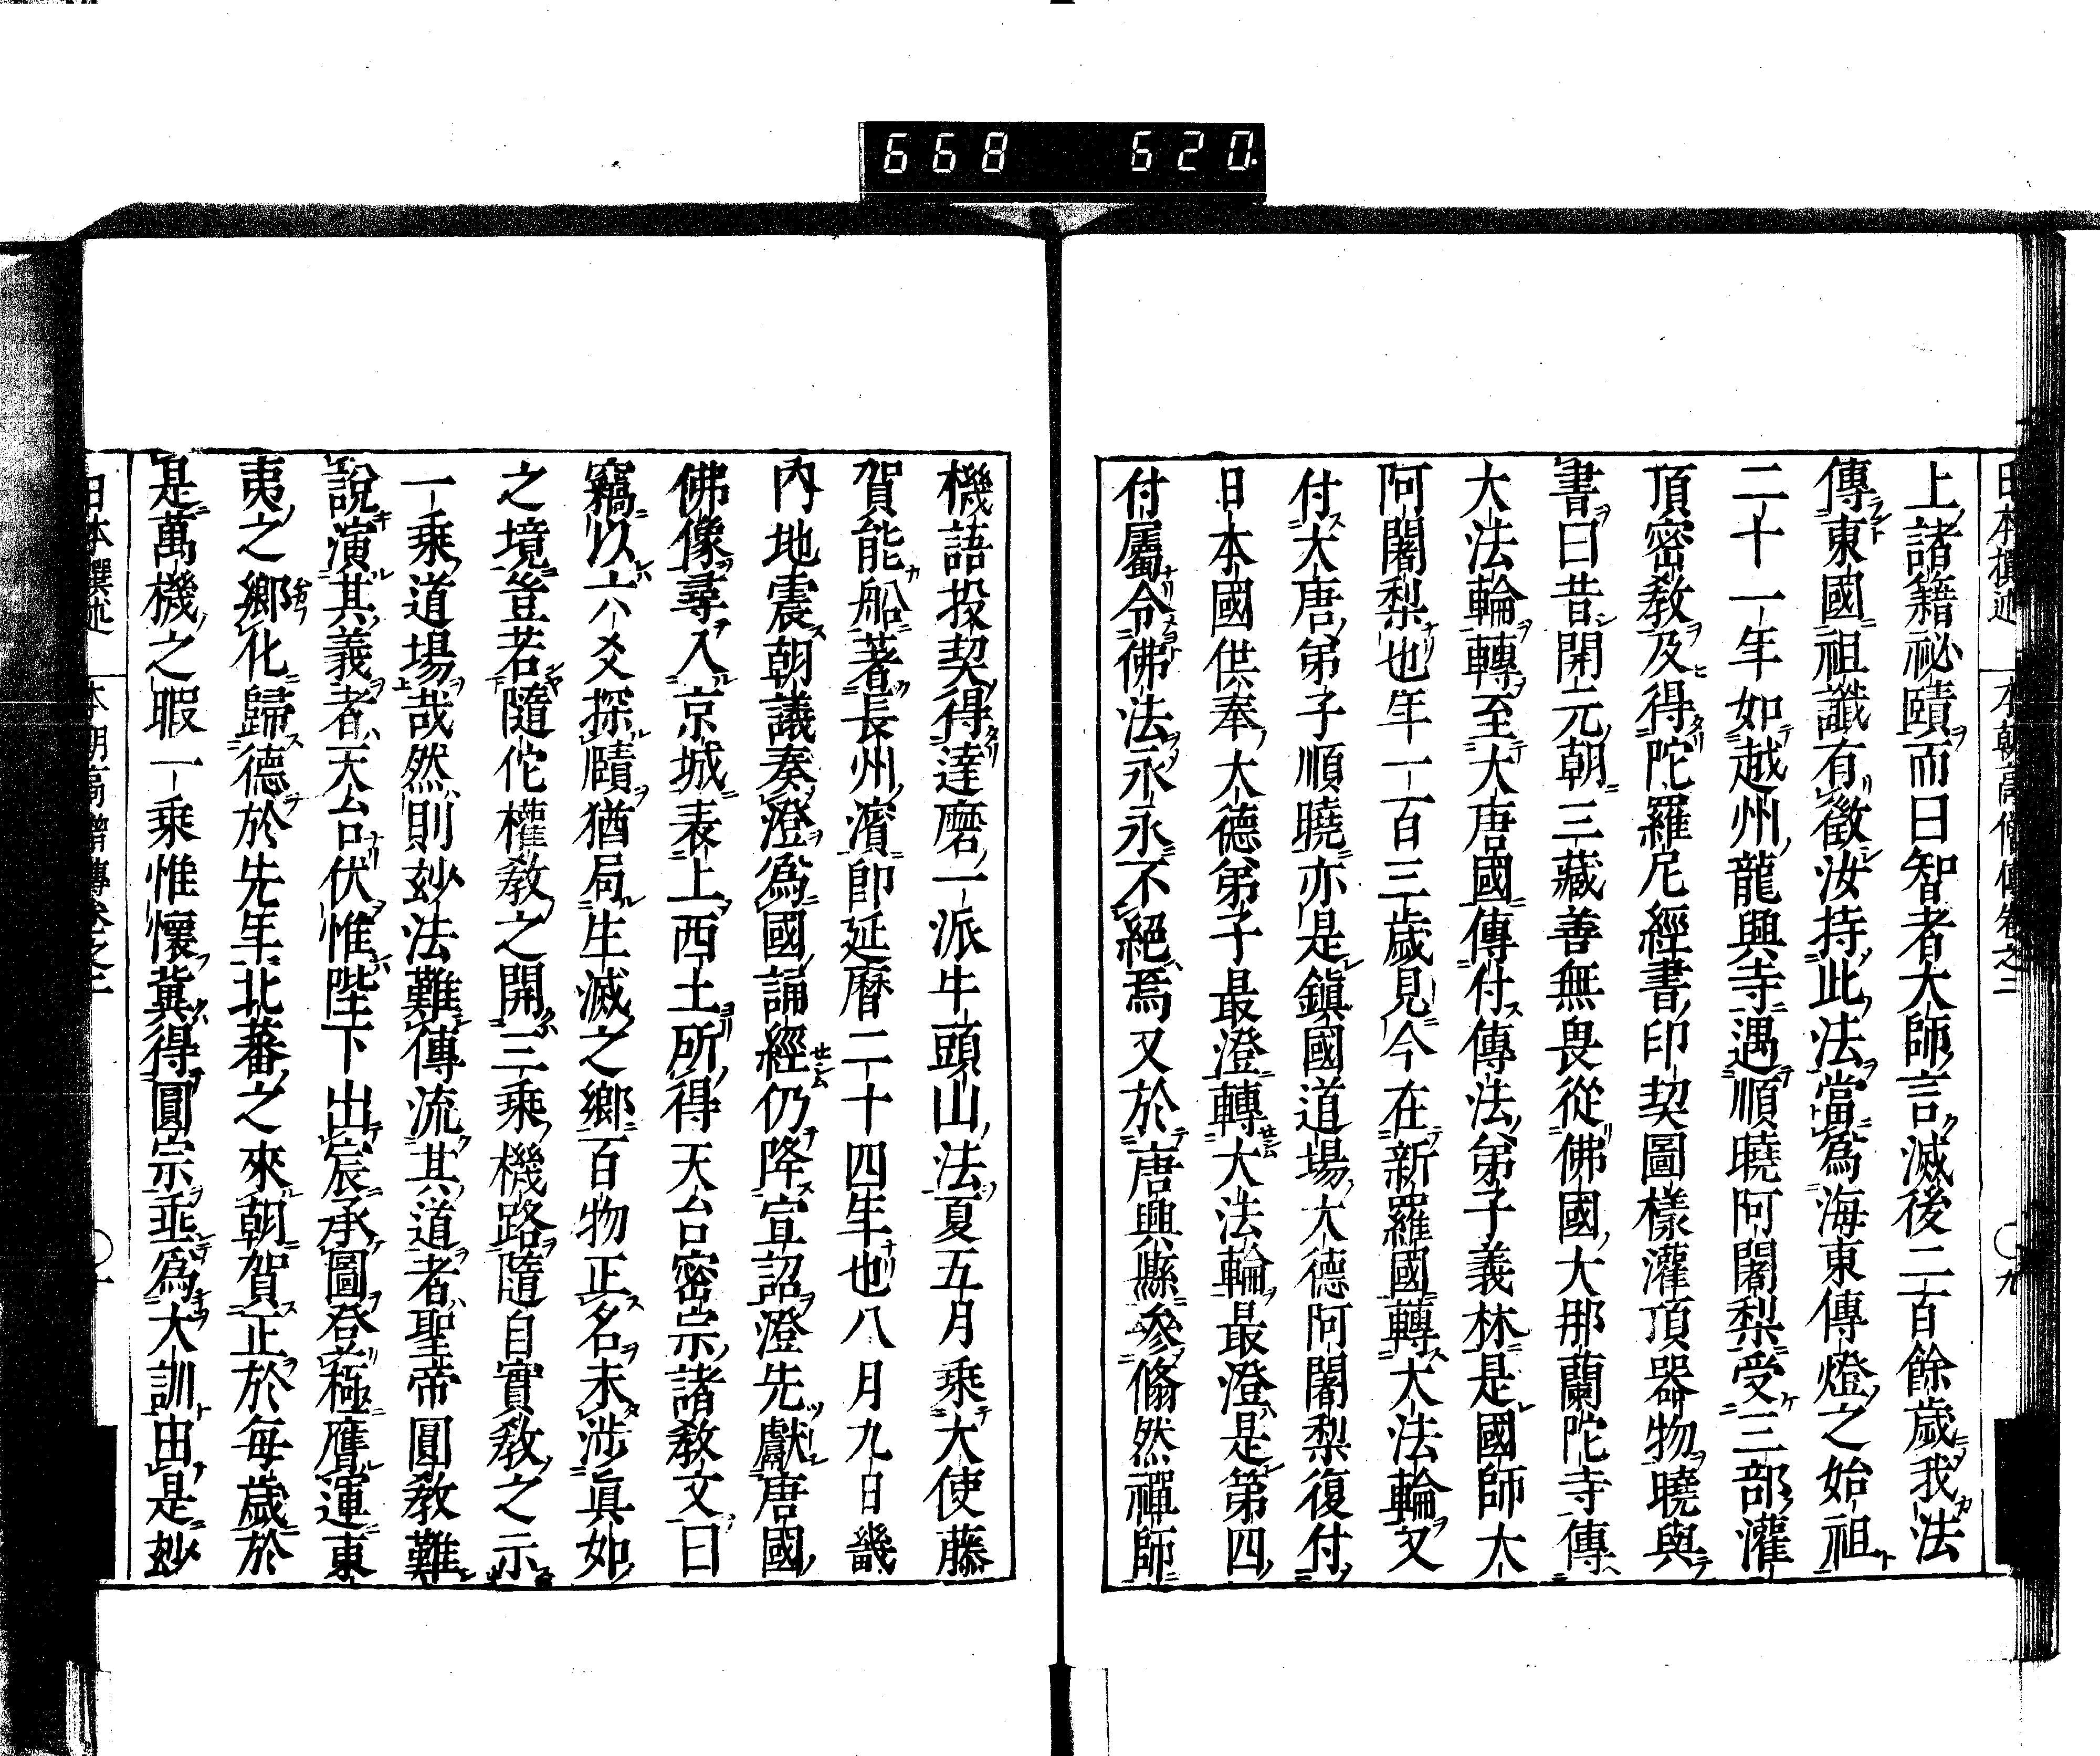 668 620
日本撰述 本朝高僧傳卷之二 九
上諸籍祕賾而曰智者大師言滅後二百餘歲我法
傳東國祖讖有徵汝持此法當爲海東傳燈之始祖
二十一年如越州龍興寺遇順曉阿闍梨受三部灌
頂密教及得陀羅尼經書印契圖樣灌頂器物曉與
書曰昔開元朝三藏善無畏從佛國大那蘭陀寺傳
大法輪轉至大唐國傳付傳法弟子義林是國師大
阿闍梨也年一百三歲見今在新羅國轉大法輪又
付大唐弟子順曉亦是鎭國道場大德阿闍梨復付
日本國供奉大德弟子最澄轉大法輪最澄是第四
付屬令佛法永永不絕焉又於唐興縣參翛然禪師
機語投契得達磨一派牛頭山法夏五月乘大使藤
賀能船著長州濱卽延曆二十四年也八月九日畿
內地震朝議奏澄爲國誦經仍降宣詔澄先獻唐國
佛像尋入京城表上西土所得天台密宗諸教文曰
竊以六爻探賾猶局生滅之鄉百物正名未涉眞如
之境豈若隨佗權教之開三乘機路隨自實教之示
一乘道場哉然則玅法難傳流其道者聖帝圓教難
說演其義者天台伏惟陛下出宸承圖登極膺運東
夷之鄉化歸德於先年北蕃之來朝賀正於每歲於
是萬機之暇一乘惟懷冀得圓宗垂爲大訓由是玅
日本撰述 本朝高僧傳卷之二